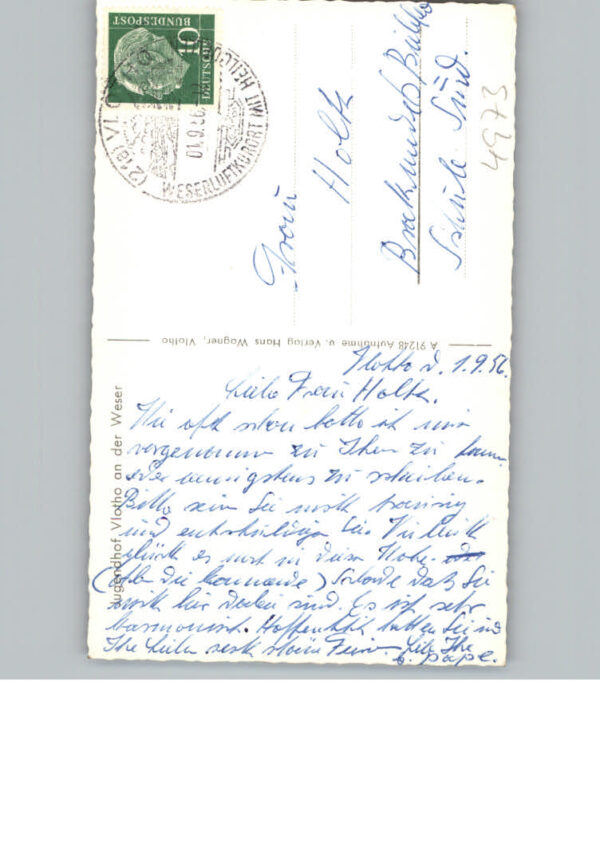 DEUTSCHE
BUNDESPOST
10
(21a) VLOTHO
01.9.56
WESERLUFTKURORT MIT HEILQU
Frau
Holtz
Schule Süd.
4973
A 91248 Aufnahme u. Verlag Hans Wagner, Vlotho
Jugendhof Vlotho an der Weser
Vlotho d. 1.9.56.
Liebe Frau Holtz.
Wie oft schon hatte ich mir
vorgenommen zu Ihnen zu kommen
oder wenigstens zu schreiben.
Bitte sein Sie nicht traurig
und entschuldigen Sie. Vielleicht
glückt es noch in dieser Woche. oder
(Ab die kommende) Schade daß Sie
nicht hier dabei sind. Es ist sehr
harmonisch. Hoffentlich hatten Sie und
Ihre Lieben recht schöne Ferien. Liebe Ihre
Pape.